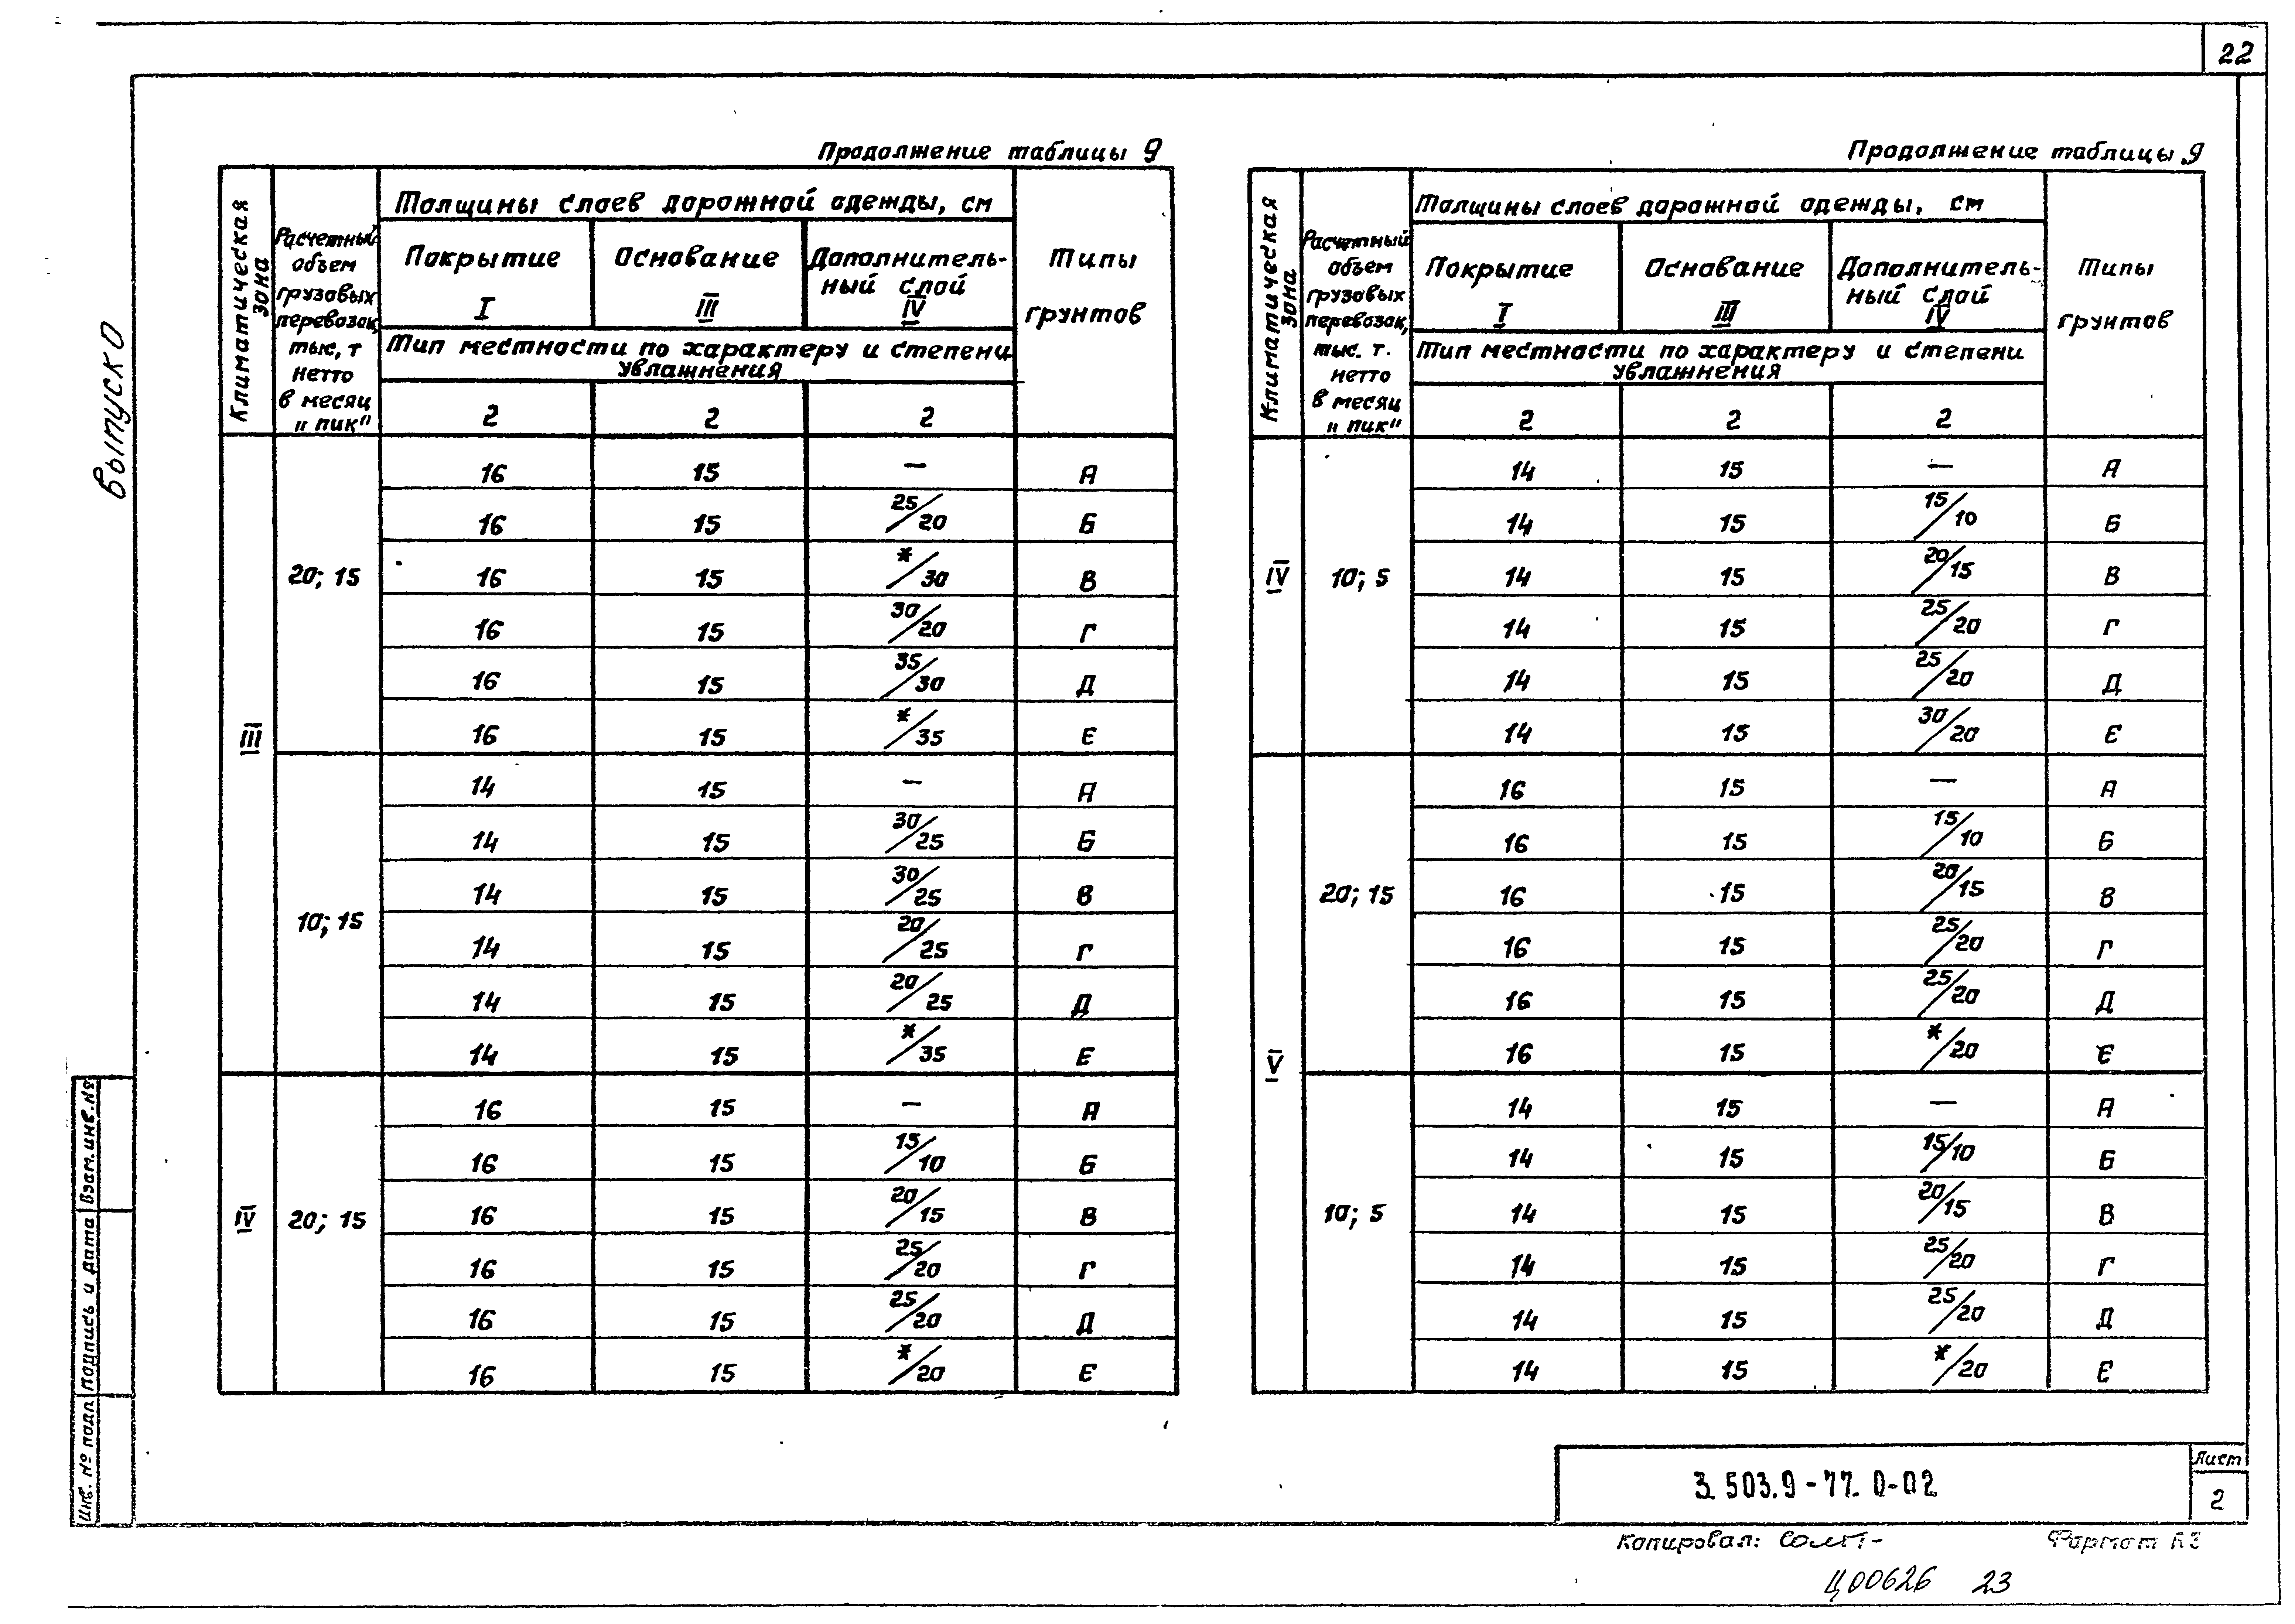 22
Выпуск 0
Продолжение таблицы 9
Климатическая зона
Расчетный объем грузовых перевозок, тыс. т нетто в месяц „пик"
Толщины слоев дорожной одежды, см
Типы грунтов
Покрытие I
Основание III
Дополнительный слой IV
Тип местности по характеру и степени увлажнения
2 2 2
III
20; 15
16 15 — А
16 15 25/20 Б
16 15 */30 В
16 15 30/20 Г
16 15 35/30 Д
16 15 */35 Е
10; 15
14 15 — А
14 15 30/25 Б
14 15 30/25 В
14 15 20/25 Г
14 15 20/25 Д
14 15 */35 Е
IV
20; 15
16 15 — А
16 15 15/10 Б
16 15 20/15 В
16 15 25/20 Г
16 15 25/20 Д
16 15 */20 Е
Продолжение таблицы 9
Климатическая зона
Расчетный объем грузовых перевозок, тыс. т. нетто в месяц „пик"
Толщины слоев дорожной одежды, см
Типы грунтов
Покрытие I
Основание III
Дополнительный слой IV
Тип местности по характеру и степени увлажнения
2 2 2
IV
10; 5
14 15 — А
14 15 15/10 Б
14 15 20/15 В
14 15 25/20 Г
14 15 25/20 Д
14 15 30/20 Е
V
20; 15
16 15 — А
16 15 15/10 Б
16 15 20/15 В
16 15 25/20 Г
16 15 25/20 Д
16 15 */20 Е
10; 5
14 15 — А
14 15 15/10 Б
14 15 20/15 В
14 15 25/20 Г
14 15 25/20 Д
14 15 */20 Е
Инв. № подл. Подпись и дата Взам. инв. №
3.503.9-77.0-02
Лист
2
Копировал:
Формат А3
Ц00626 23